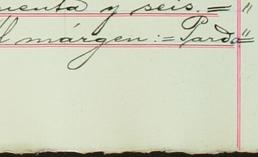 menta y seis. = "
l márgen: = Parda "